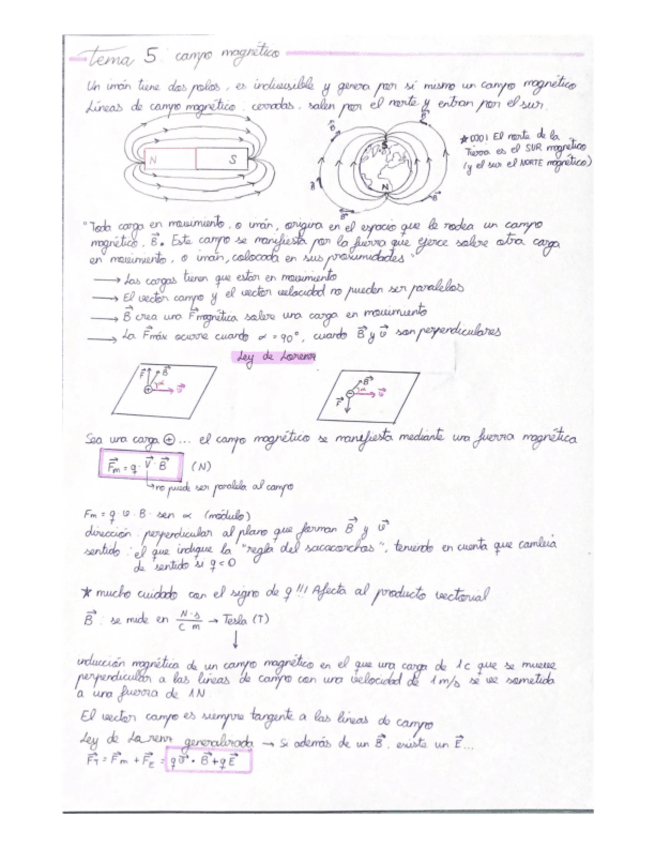 Tema 5: campo magnético
Un imán tiene dos polos, es indivisible y genera por sí mismo un campo magnético
Líneas de campo magnético: cerradas, salen por el norte y entran por el sur.
N S
B
S
N
B
B
B
B
*OJO! El norte de la
Tierra es el SUR magnético
(y el sur el NORTE magnético)
"Toda carga en movimiento, o imán, origina en el espacio que le rodea un campo
magnético, B. Este campo se manifiesta por la fuerza que ejerce sobre otra carga
en movimiento, o imán, colocada en sus proximidades"
→ Las cargas tienen que estar en movimiento
→ El vector campo y el vector velocidad no pueden ser paralelos
→ B crea una F magnética sobre una carga en movimiento
→ La F máx ocurre cuando α = 90°, cuando B y v son perpendiculares
Ley de Lorenz
F B α v
F B α v
Sea una carga ⊕... el campo magnético se manifiesta mediante una fuerza magnética
Fm = q · V · B (N)
↳ no puede ser paralela al campo
Fm = q v · B · sen α (módulo)
dirección: perpendicular al plano que forman B y v
sentido: el que indique la "regla del sacacorchos", teniendo en cuenta que cambia
de sentido si q < 0
* mucho cuidado con el signo de q !!! Afecta al producto vectorial
B: se mide en N·s / C m → Tesla (T)
↓
inducción magnética de un campo magnético en el que una carga de 1 C que se mueve
perpendicular a las líneas de campo con una velocidad de 1 m/s se ve sometida
a una fuerza de 1 N
El vector campo es siempre tangente a las líneas de campo
Ley de Lorenz generalizada → Si además de un B, existe un E...
FT = Fm + FE = q v · B + q E